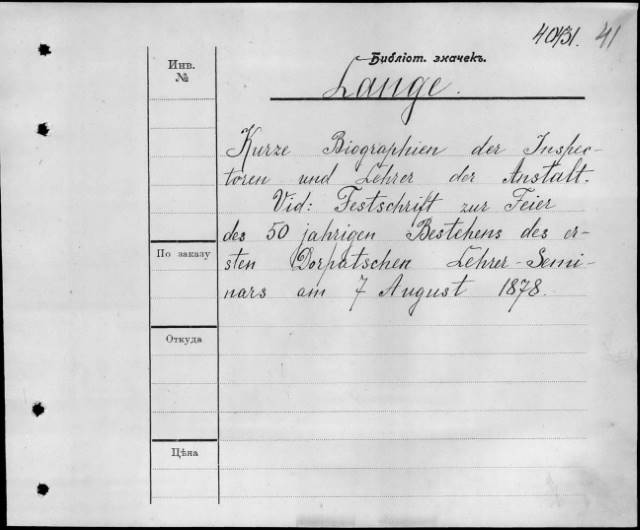 40131. 41
Инв.
№
Библіот. значекъ.
Lange.
Kurze Biographien der Inspec-
toren und Lehrer der Anstalt.
Vid: Festschrift zur Feier
des 50 jahrigen Bestehens des er-
sten Dorpatschen Lehrer-Semi-
nars am 7 August 1878.
По заказу
Откуда
Цѣна